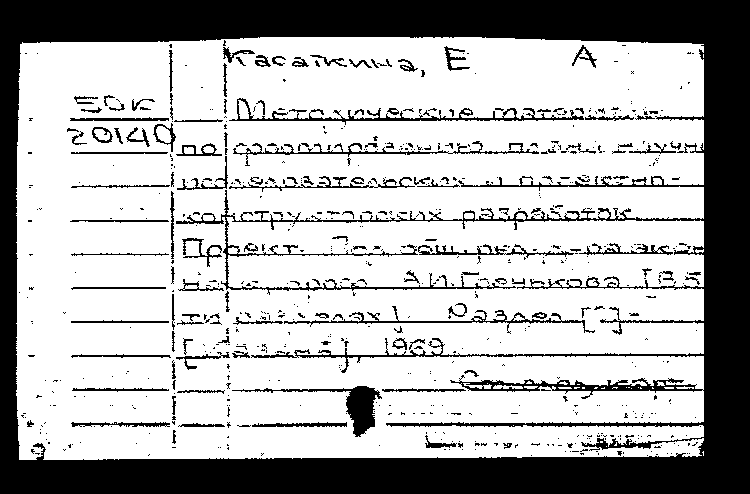 Касаткина, Е А
50К
20140
Методические материалы
по формированию плана научно
исследовательских и проектно-
конструкторских разработок.
Проект. Под общ. ред. д-ра экон
наук, проф. А.И. [В 5
ти разделах]. Раздел
1969.